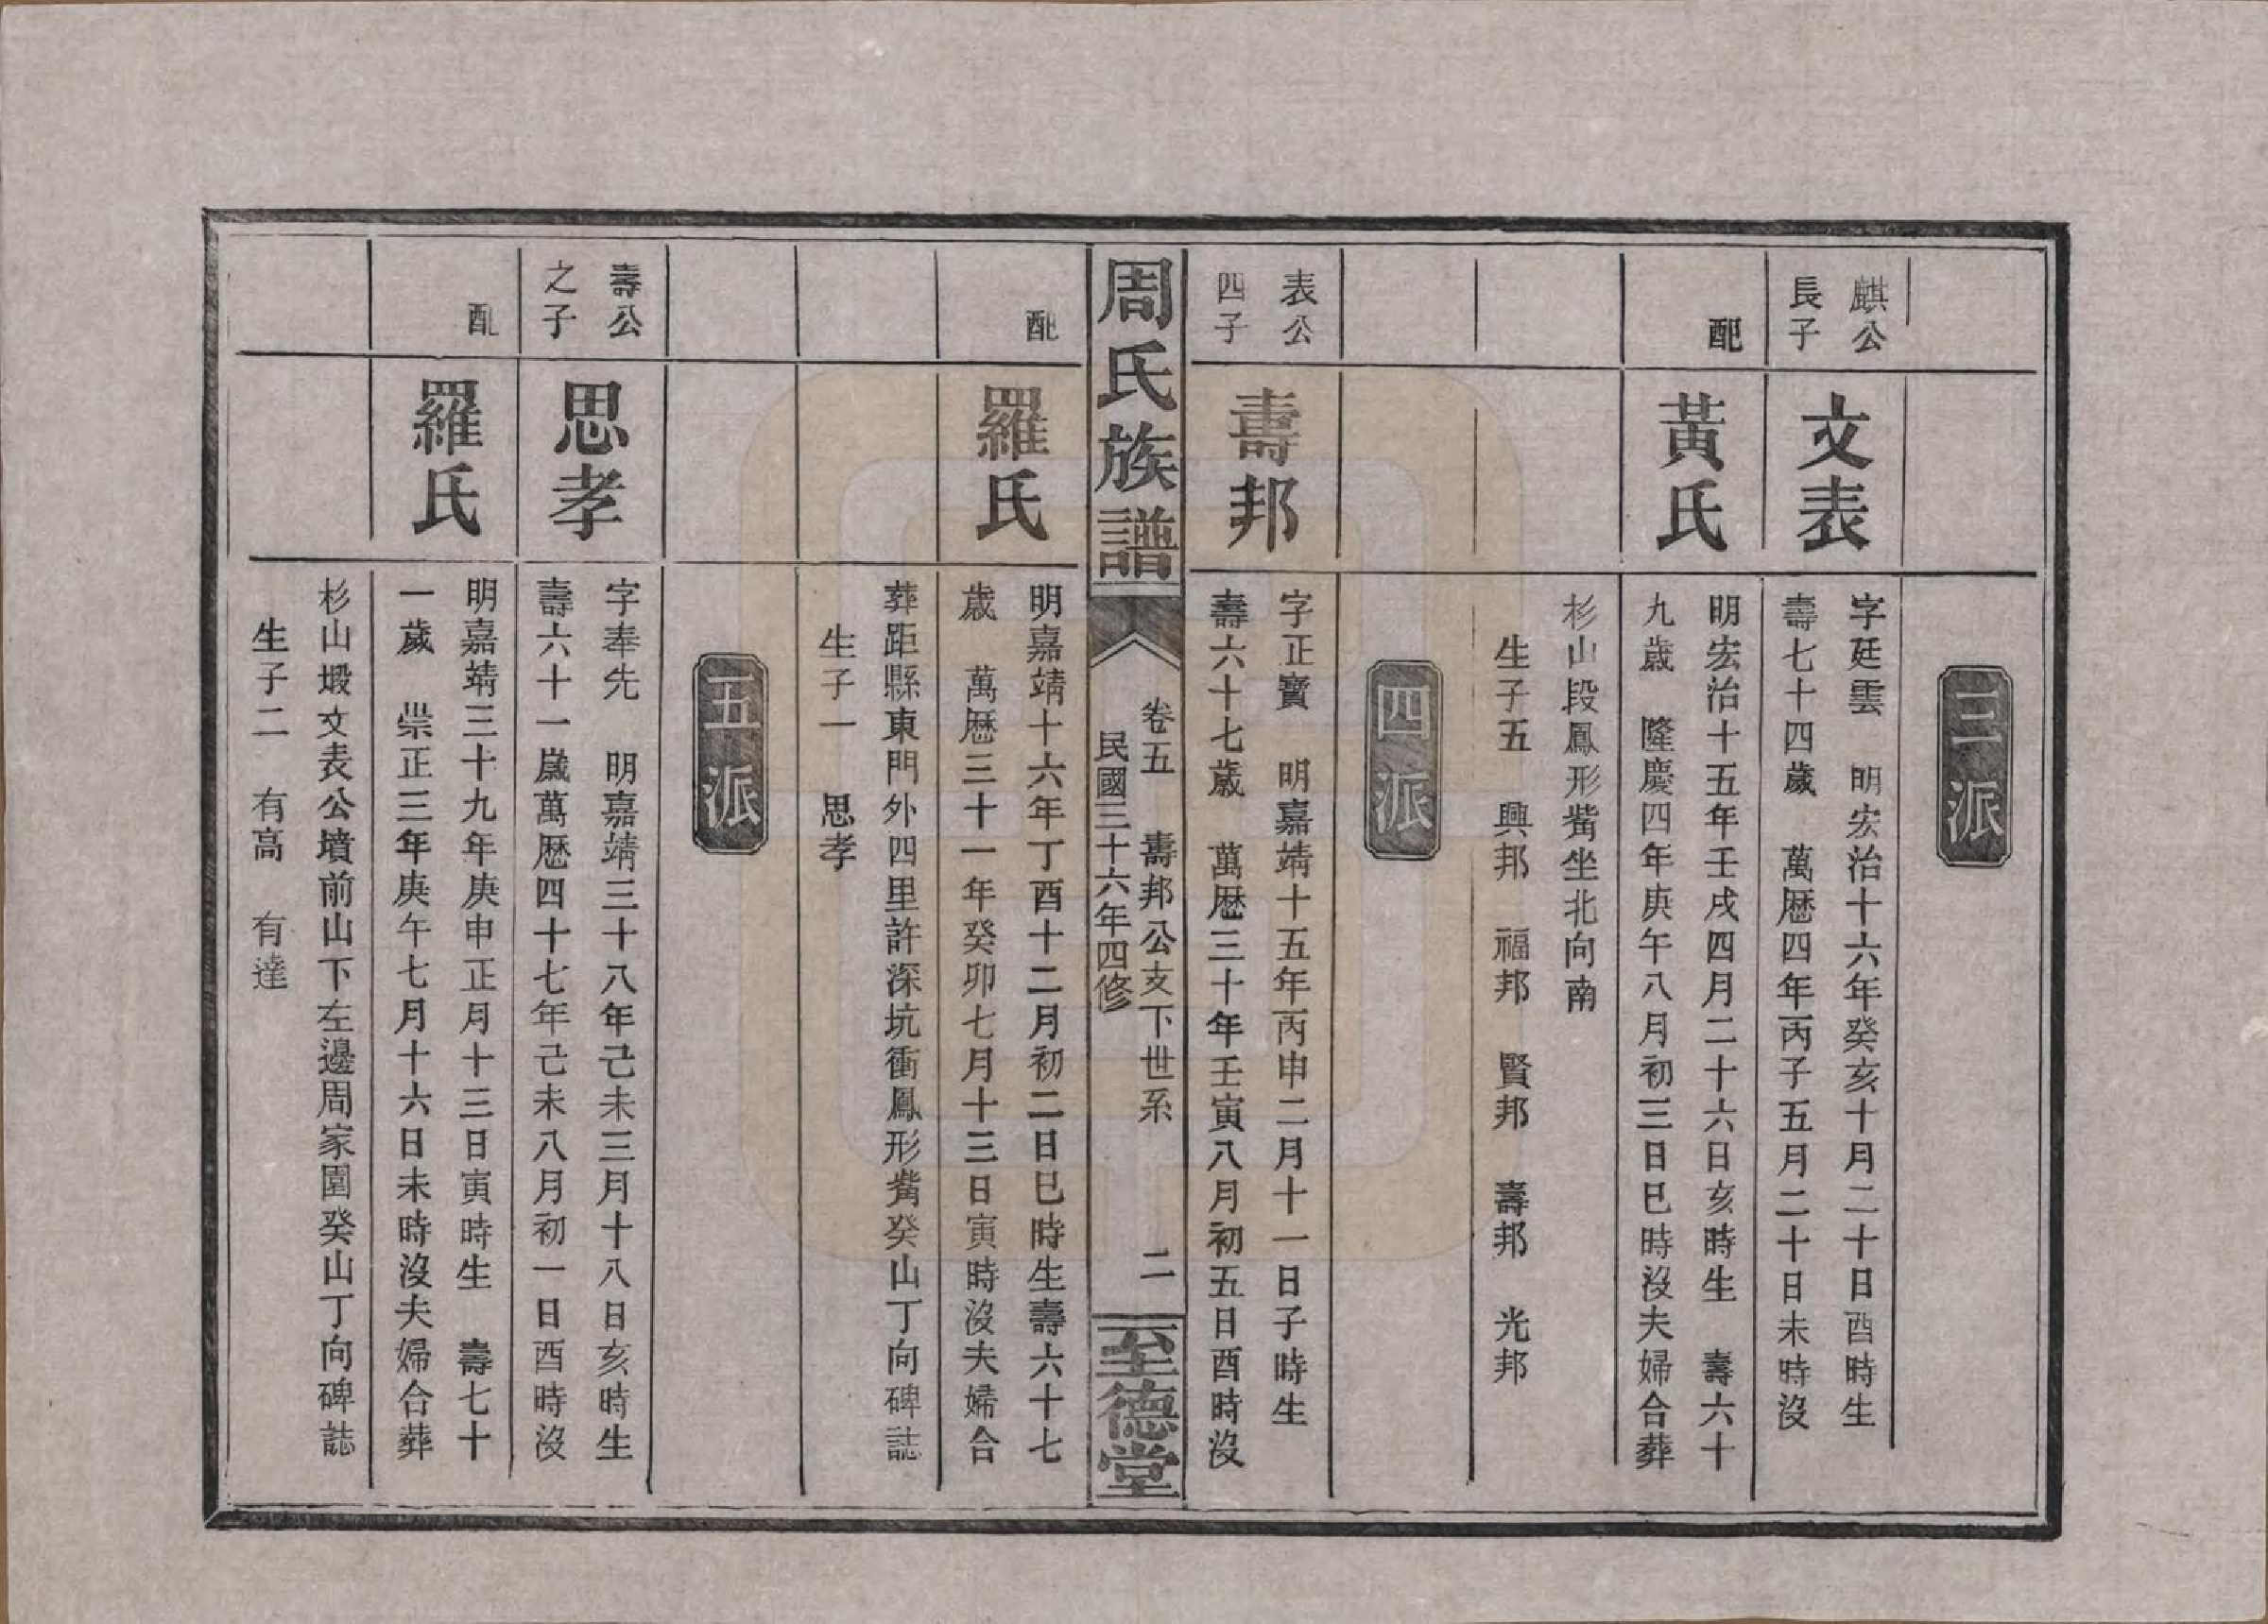 三派
麒公
長子
文表
字廷雲　明宏治十六年癸亥十月二十日酉時生
壽七十四歲　萬歷四年丙子五月二十日未時沒
配
黃氏
明宏治十五年壬戌四月二十六日亥時生　壽六十
九歲　隆慶四年庚午八月初三日巳時沒夫婦合葬
杉山段鳳形嘴坐北向南
生子五　興邦　福邦　賢邦　壽邦　光邦
四派
表公
四子
壽邦
字正寶　明嘉靖十五年丙申二月十一日子時生
壽六十七歲　萬歷三十年壬寅八月初五日酉時沒
周氏族譜
卷五　壽邦公支下世系　二
民國三十六年四修
至德堂
配
羅氏
明嘉靖十六年丁酉十二月初二日巳時生壽六十七
歲　萬歷三十一年癸卯七月十三日寅時沒夫婦合
葬距縣東門外四里許深坑衝鳳形嘴癸山丁向碑誌
生子一　思孝
五派
壽公
之子
思孝
字奉先　明嘉靖三十八年己未三月十八日亥時生
壽六十一歲萬歷四十七年己未八月初一日酉時沒
配
羅氏
明嘉靖三十九年庚申正月十三日寅時生　壽七十
一歲　崇正三年庚午七月十六日未時沒夫婦合葬
杉山塅文表公墳前山下左邊周家園癸山丁向碑誌
生子二　有高　有達